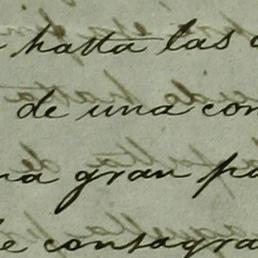 hasta las
de una con
na gran pa
le consagra